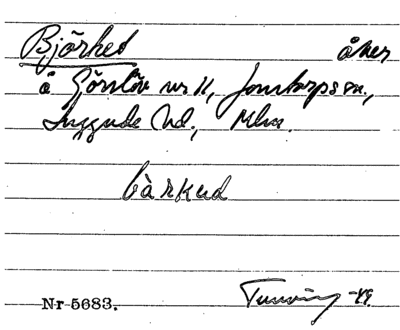 Björhed åker
å Görslöv nr 11, Jonstorps sn.,
Luggude hd., Mlm.
bàrkud
Nr 5683. Tuneving -49.